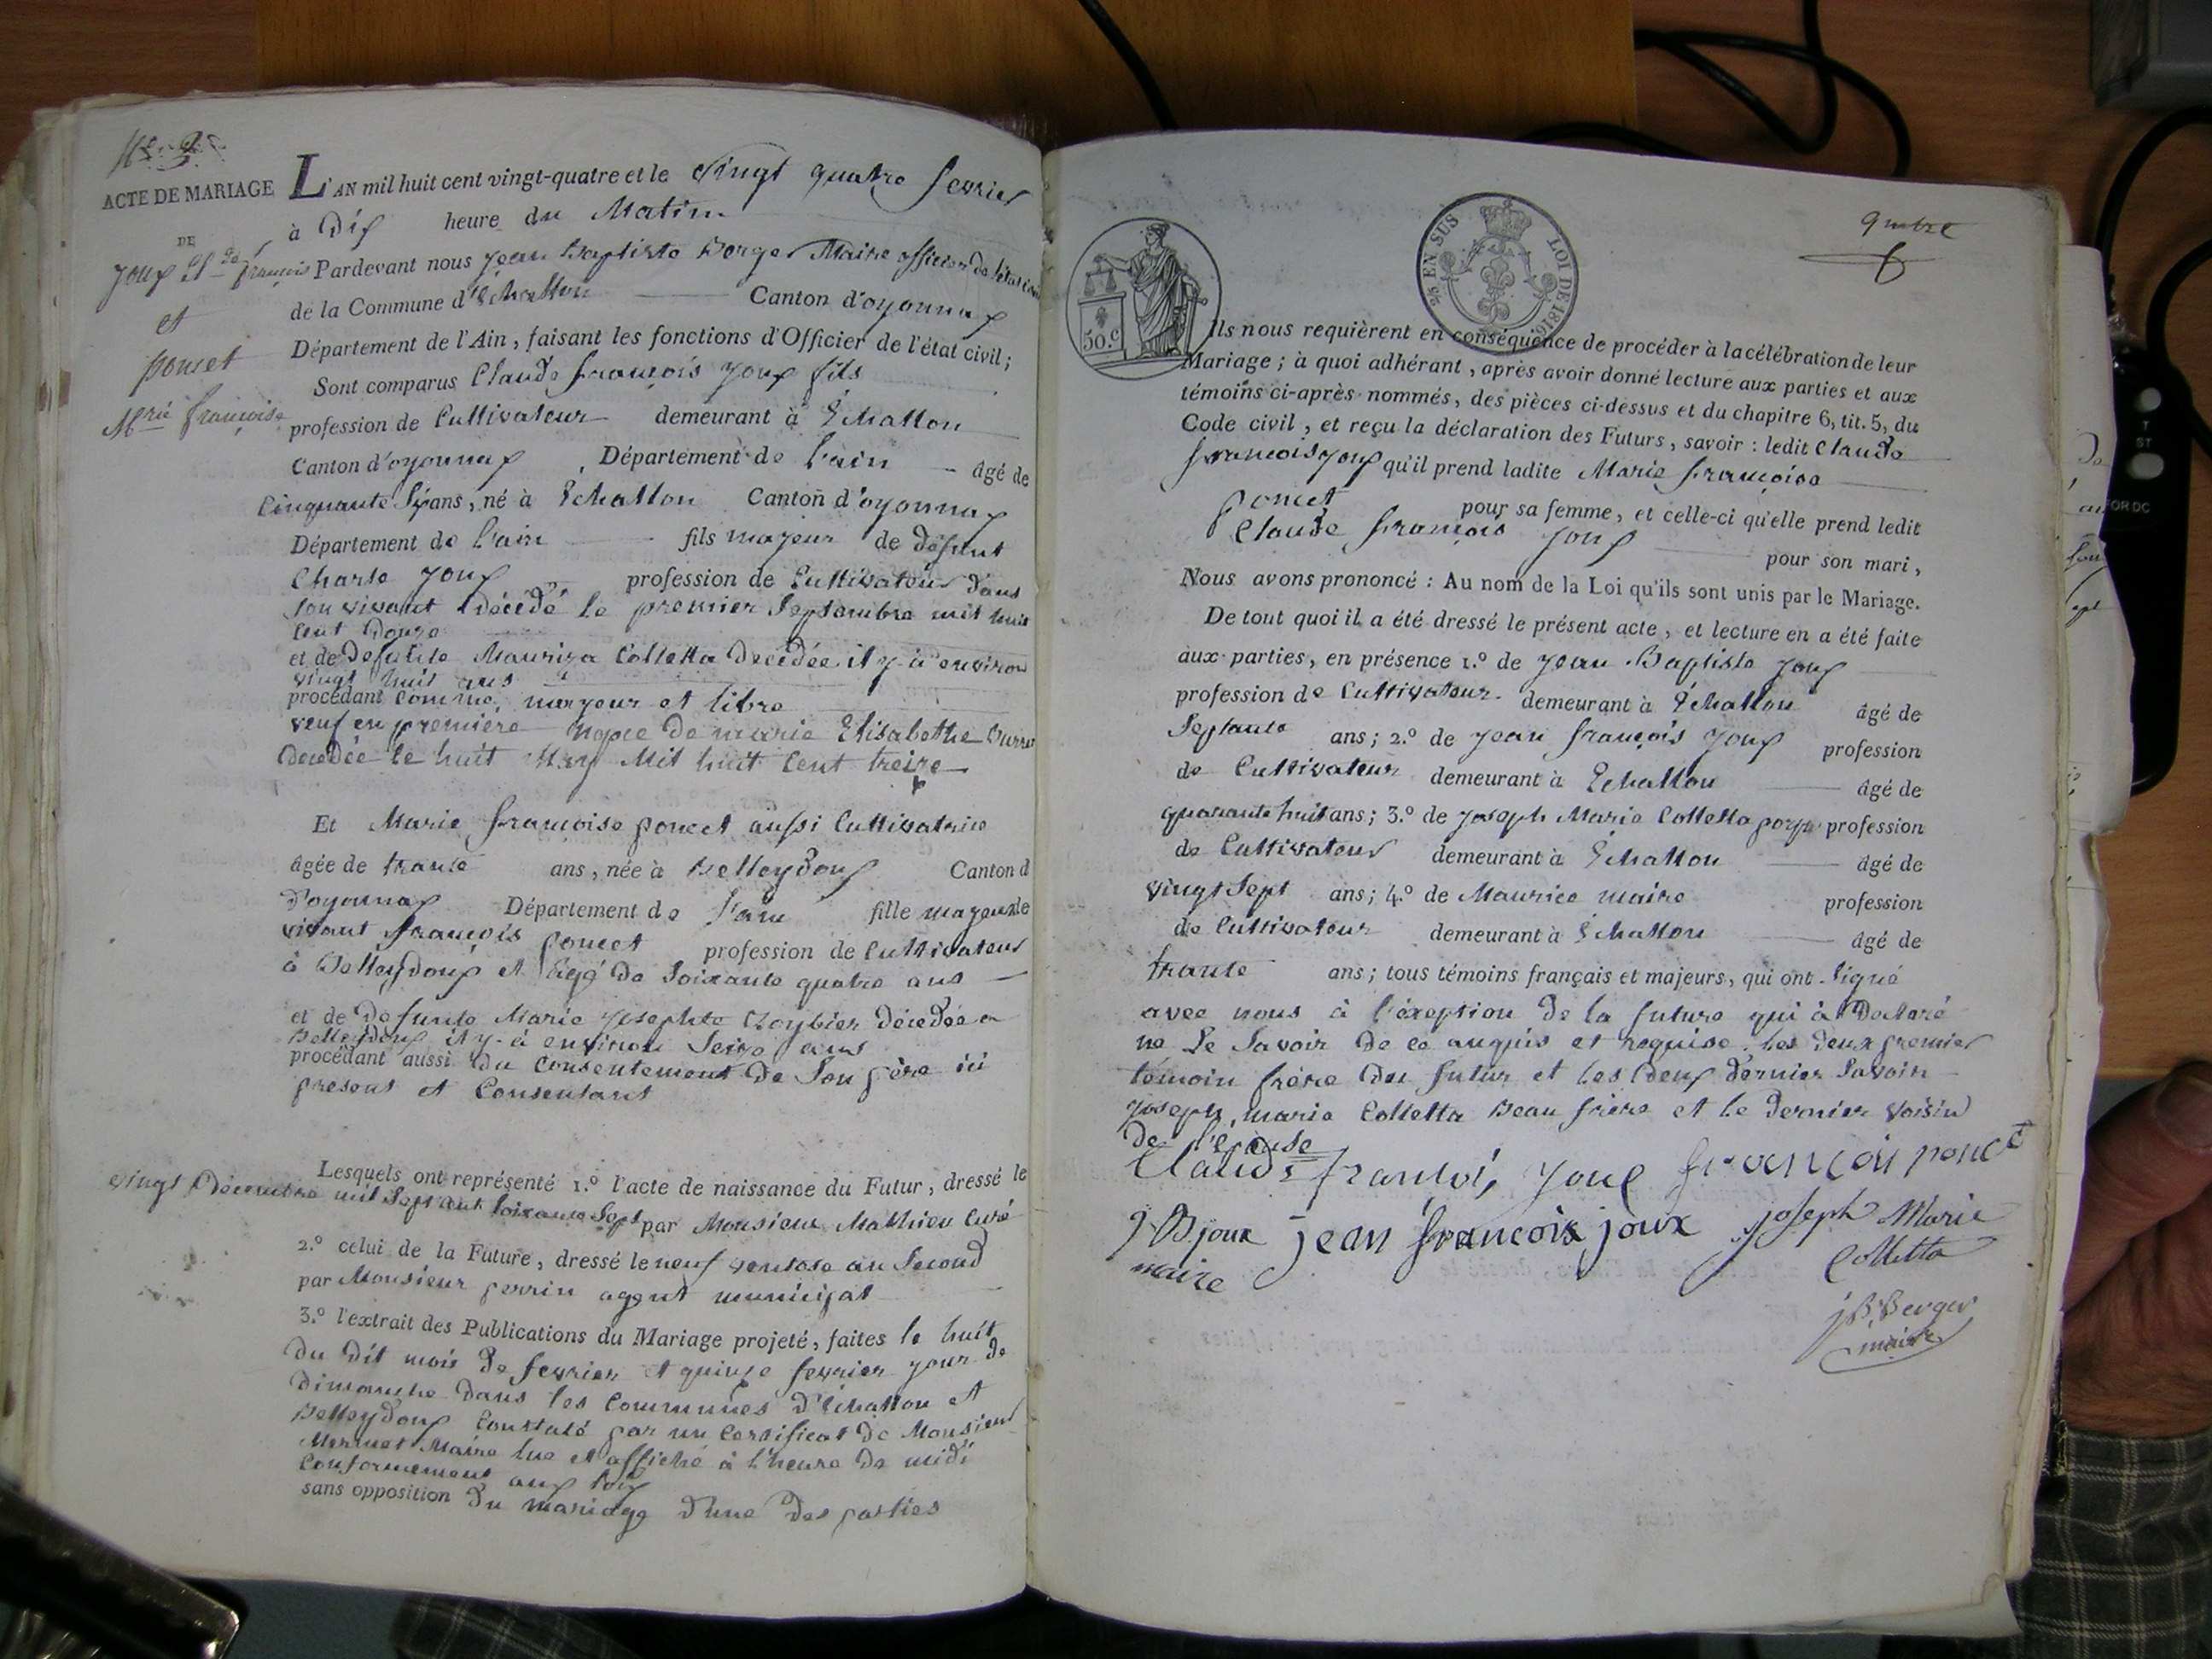 N.o 3
ACTE DE MARIAGE
DE
joux Cl.de françois
et
poncet
M.rie françoise
L'AN mil huit cent vingt-quatre et le vingt quatre fevrier
à Dix heure du Matin
Pardevant nous jean Baptiste Berger Maire officier de l'état civil
de la Commune d'Echallon Canton d'oyonnax
Département de l'Ain, faisant les fonctions d'Officier de l'état civil;
Sont comparus Claude françois joux fils
profession de Cultivateur demeurant à Echallon
Canton d'oyonnax, Département de l'ain âgé de
Cinquante Six ans, né à Echallon Canton d'oyonnax
Département de l'ain fils majeur de défunt
Charle joux profession de Cultivateur dans
son vivant décédé le premier Septembre mil huit
Cent Douze
et de Defunte Mauriza Colletta décédée il y à environ
vingt huit ans
procédant comme majeur et libre
veuf en première nopce de marie Elisabethe
décédée le huit May Mil huit Cent treize
Et Marie françoise poncet aussi Cultivatrice
âgée de trante ans, née à Belleydoux Canton d
d'oyonnax Département de l'ain fille majeur de
vivant françois poncet profession de Cultivateur
à Belleydoux et agé de Soixante quatre ans
et de defunte Marie josephte décédée a
Belleydoux il y à environ Seize ans
procédant aussi du Consentement de Son père ici
présent et Consentant
Lesquels ont représenté 1.º l'acte de naissance du Futur, dressé le
vingt Décembre mil Sept Cent Soixante Sept par Monsieur Mathieu Curé
2.º celui de la Future, dressé le neuf ventose an Second
par Monsieur perrin agent municipal
3.º l'extrait des Publications du Mariage projeté, faites le huit
du dit mois de fevrier et quinze fevrier jour de
Dimanche dans les Communes d'Echallon et
Belleydoux Constaté par un Certificat de Monsieur
Mermet Maire lue et affiché à l'heure de midi
Conformement aux loix
sans opposition du mariage d'une des parties
qMbre
5o.c
2/5 EN SUS LOI DE 1816
Ils nous requièrent en conséquence de procéder à la célébration de leur
Mariage; à quoi adhérant, après avoir donné lecture aux parties et aux
témoins ci-après nommés, des pièces ci-dessus et du chapitre 6, tit. 5, du
Code civil, et reçu la déclaration des Futurs, savoir: ledit Claude
francois joux qu'il prend ladite Marie françoise
poncet pour sa femme, et celle-ci qu'elle prend ledit
Claude françois joux pour son mari,
Nous avons prononcé: Au nom de la Loi qu'ils sont unis par le Mariage.
De tout quoi il a été dressé le présent acte, et lecture en a été faite
aux parties, en présence 1.º de jean Baptiste joux
profession de Cultivateur demeurant à Echallon âgé de
Septante ans; 2.º de jean françois joux profession
de Cultivateur demeurant à Echallon âgé de
quarante huit ans; 3.º de joseph Marie Colletta profession
de Cultivateur demeurant à Echallon âgé de
vingt Sept ans; 4.º de Maurice maire profession
de Cultivateur demeurant à Echallon âgé de
trante ans; tous témoins français et majeurs, qui ont Signé
avec nous à l'exeption de la future qui à Déclaré
ne Le Savoir de ce anquis et requise. les deux premier
témoin frère du futur et les deux dernier Savoir
joseph marie Colletta Beau frère et le dernier voisin
de l'épouse
Claude francoi joux françoi poncet
j B joux jean francoix joux joseph Marie
Colletta
maire
j B Berger
maire